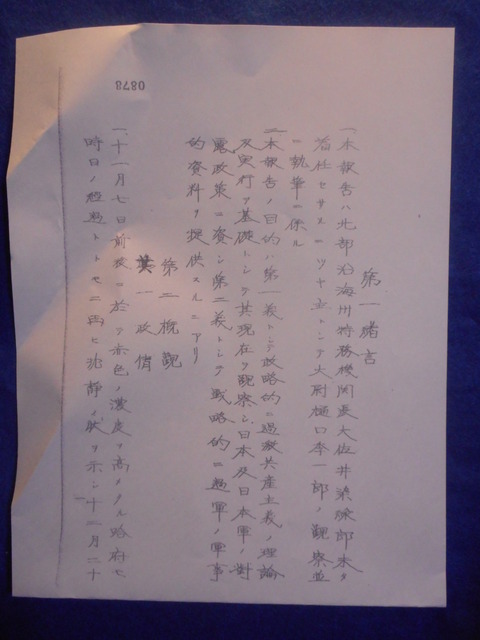 0878
第一 緒言
一、本報告ハ北部沿海州特務機関長大佐井染禄郎未タ
着任セサルニツキ主トシテ大尉樋口季一郎ノ観察並
ニ執筆ニ係ル
二、本報告ノ目的ハ第一義トシテ政略的ニ過激共産主義ノ理論
及実行ヲ基礎トシテ其現在ヲ観察シ日本及日本軍ノ対
露政策ニ資シ第二義トシテ戦略的ニ過軍ノ軍事
的資料ヲ提供スルニアリ
第二 概観
其一 政情
一、十一月七日前後ニ於テ赤色ノ濃度ヲ高メタル府モ
時日ノ経過トトモニ再ヒ沈静ノ状ヲ示シ十二月二十